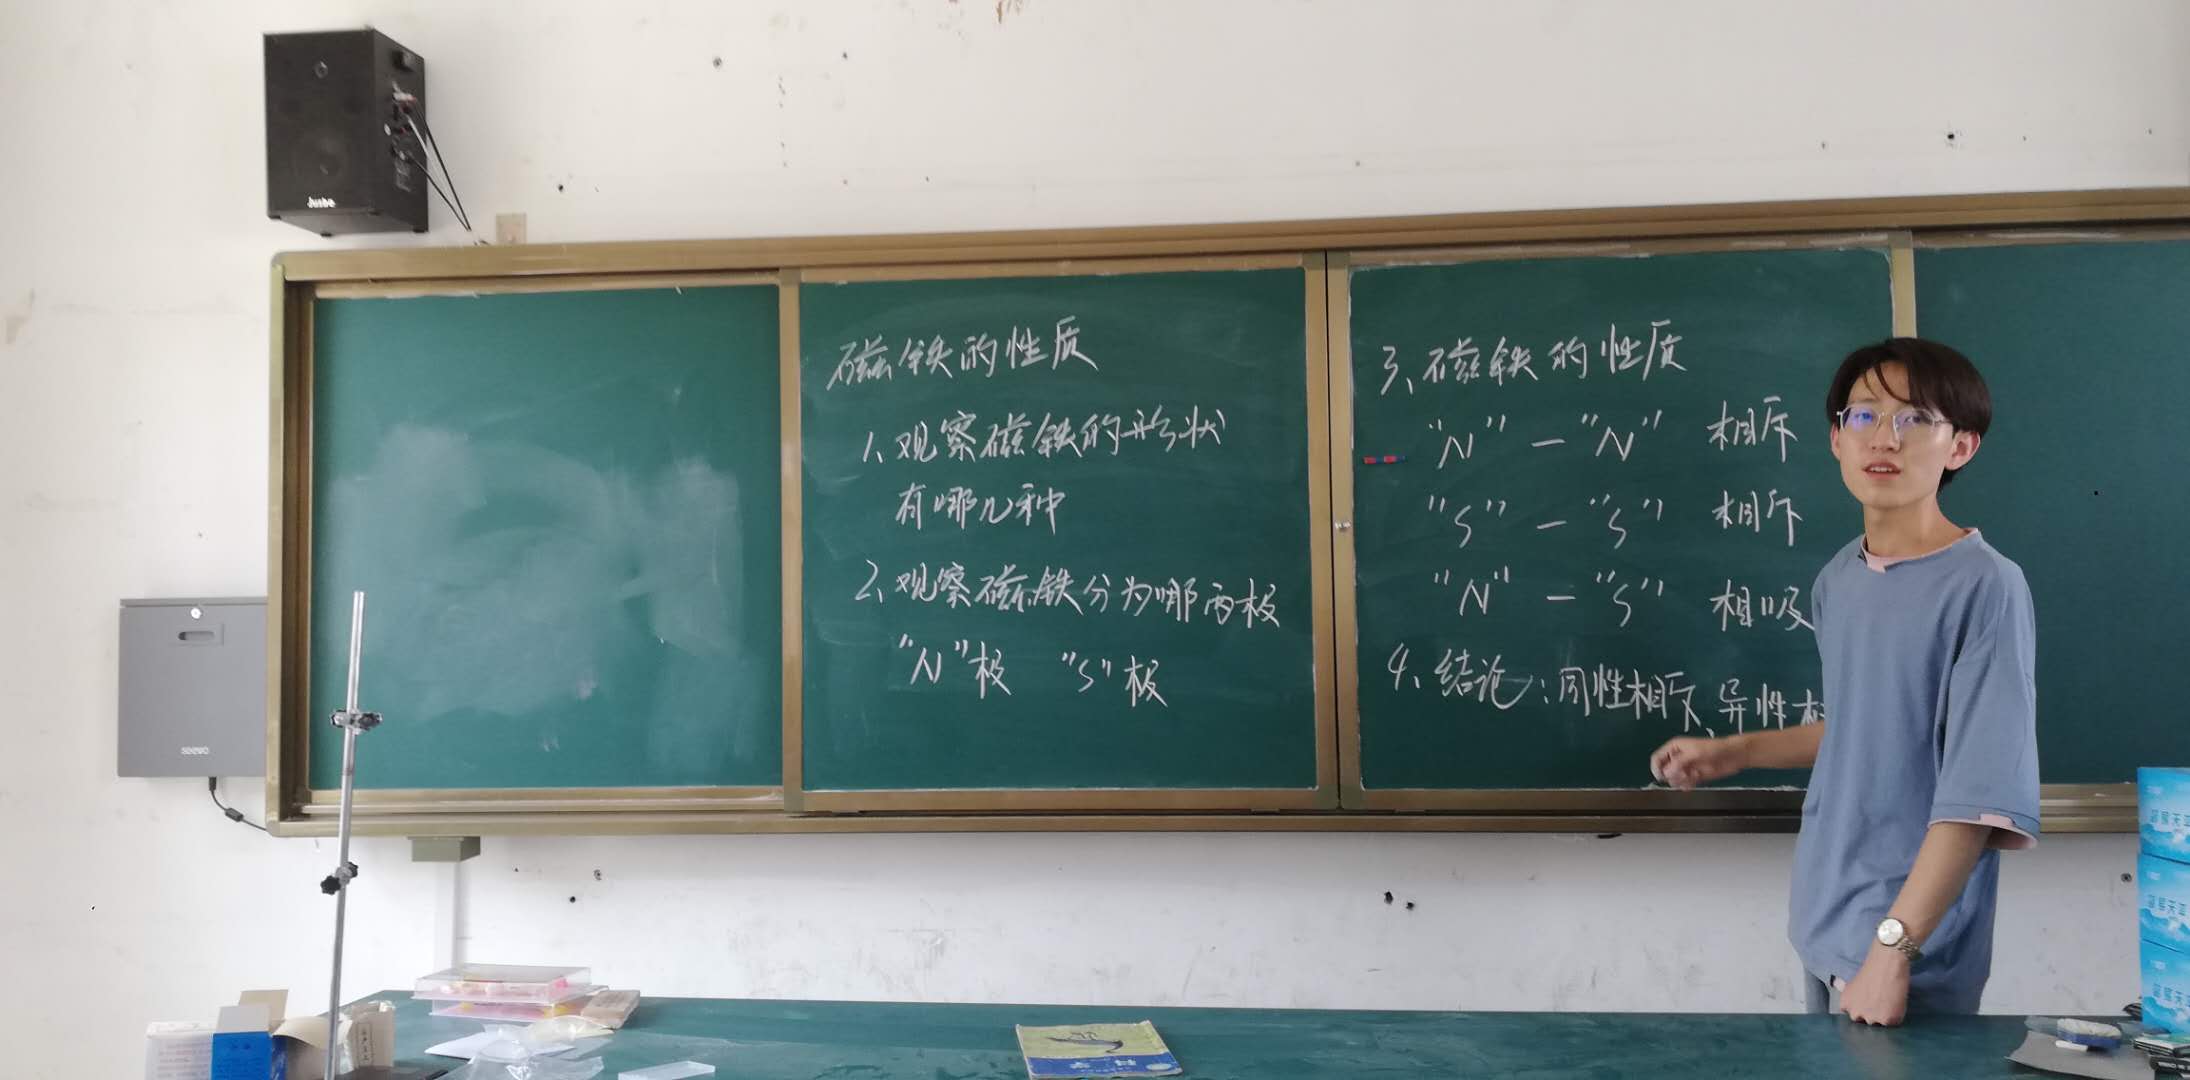 Jusbe
seewo
磁铁的性质
1、观察磁铁的形状
有哪几种
2、观察磁铁分为哪两极
"N"极 "S"极
3、磁铁的性质
"N" — "N" 相斥
"S" — "S" 相斥
"N" — "S" 相吸
4、结论:同性相斥、异性相